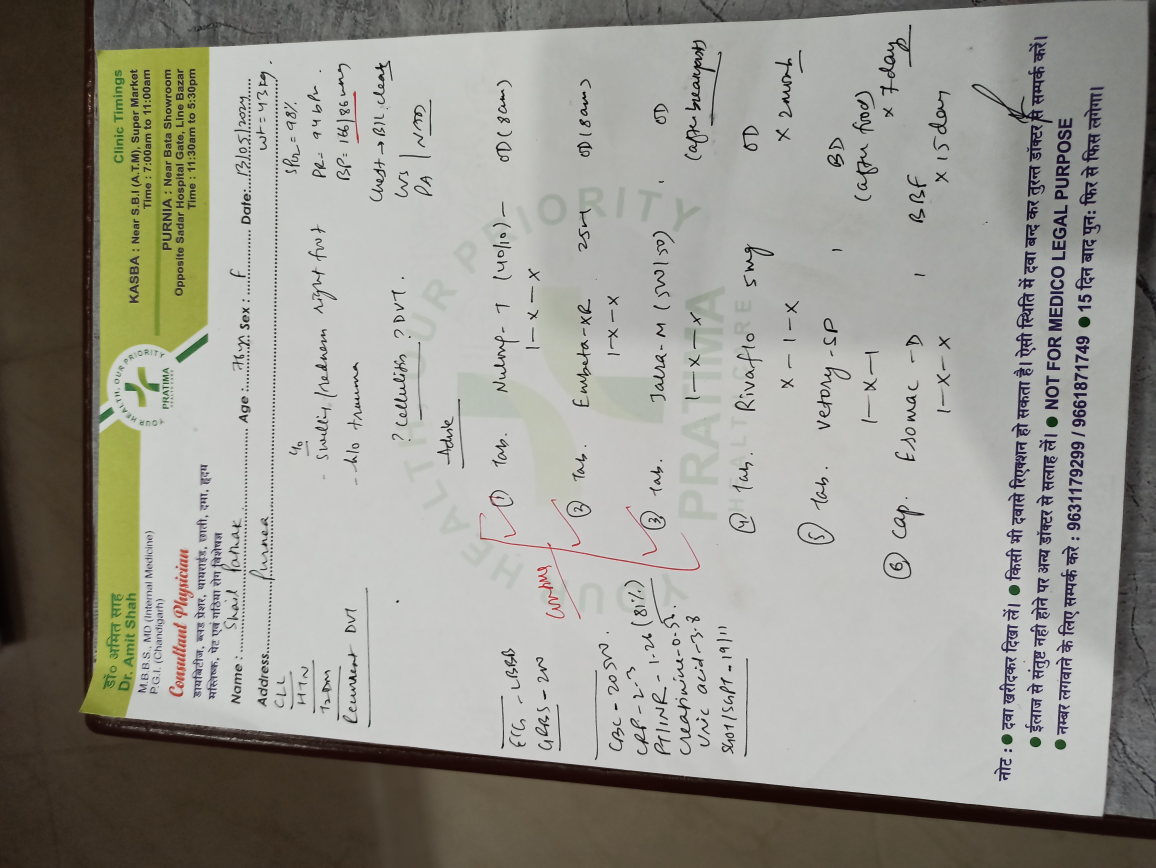 डॉ० अमित साह
Dr. Amit Shah
M.B.B.S., MD (Internal Medicine)
P.G.I. (Chandigarh)
Consultant Physician
डायबिटीज, ब्लड प्रेशर, थायराईड, छाती, दमा, हृदय
मस्तिष्क, पेट एवं गठिया रोग विशेषज्ञ
YOUR HEALTH, OUR PRIORITY
PRATIMA
Clinic Timings
KASBA : Near S.B.I (A.T.M), Super Market
Time : 7:00am to 11:00am
PURNIA : Near Bata Showroom
Opposite Sadar Hospital Gate, Line Bazar
Time : 11:30am to 5:30pm
Name : Shail Pathak Age : Sex : F Date: 13/05/2024
Address Purnea wt = 43 kg.
CLL
HTN
T2DM
Recurrent DVT
c/o
- Swelling/redness right foot
- h/o trauma
? Cellulitis ? DVT.
SpO2 = 98%
PR = 94 bpm.
BP = 166/86 mmHg
Chest → B/L clear
PA | NAD
ECG - LBBB
GRBS - 200
CBC - 20500.
CRP - 2.3
PT/INR - 1.26 (81%)
Creatinine - 0.56.
Uric acid - 3.8
SGOT/SGPT - 19/11
Advise
① Tab. (40/10) - OD (8am)
1 - x - x
② Tab. Embeta-XR 25 OD (8am)
1 - x - x
③ Tab. Jalra-M (50/500) OD
1 - x - x (after breakfast)
continue
④ Tab. Rivaflo 5mg OD
x - 1 - x x 2 month
⑤ Tab. Vetory-SP BD
1 - x - 1 (after food) x 7 day
⑥ Cap. Esomac-D BBF
1 - x - x x 15 day
YOUR HEALTH OUR PRIORITY
PRATIMA
HEALTHCARE
नोट : ● दवा खरीदकर दिखा लें। ● किसी भी दवासे रिएक्शन हो सकता है। ऐसी स्थिति में दवा बन्द कर तुरन्त डॉक्टर से सम्पर्क करें।
● ईलाज से संतुष्ट नही होने पर अन्य डॉक्टर से सलाह लें। ● NOT FOR MEDICO LEGAL PURPOSE
● नम्बर लगवाने के लिए सम्पर्क करे : 9631179299 / 9661871749 ● 15 दिन बाद पुनः फिर से फिस लगेगा।